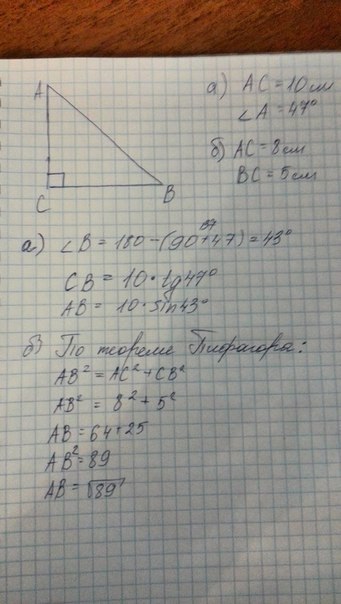 A
C
B
а) AC = 10 см
∠A = 47°
б) AC = 8 см
BC = 5 см
137
а) ∠B = 180 - (90 + 47) = 43°
CB = 10 · tg47°
AB = 10 · sin43°
б) По теореме Пифагора:
AB² = AC² + CB²
AB² = 8² + 5²
AB = 64 + 25
AB² = 89
AB = √89